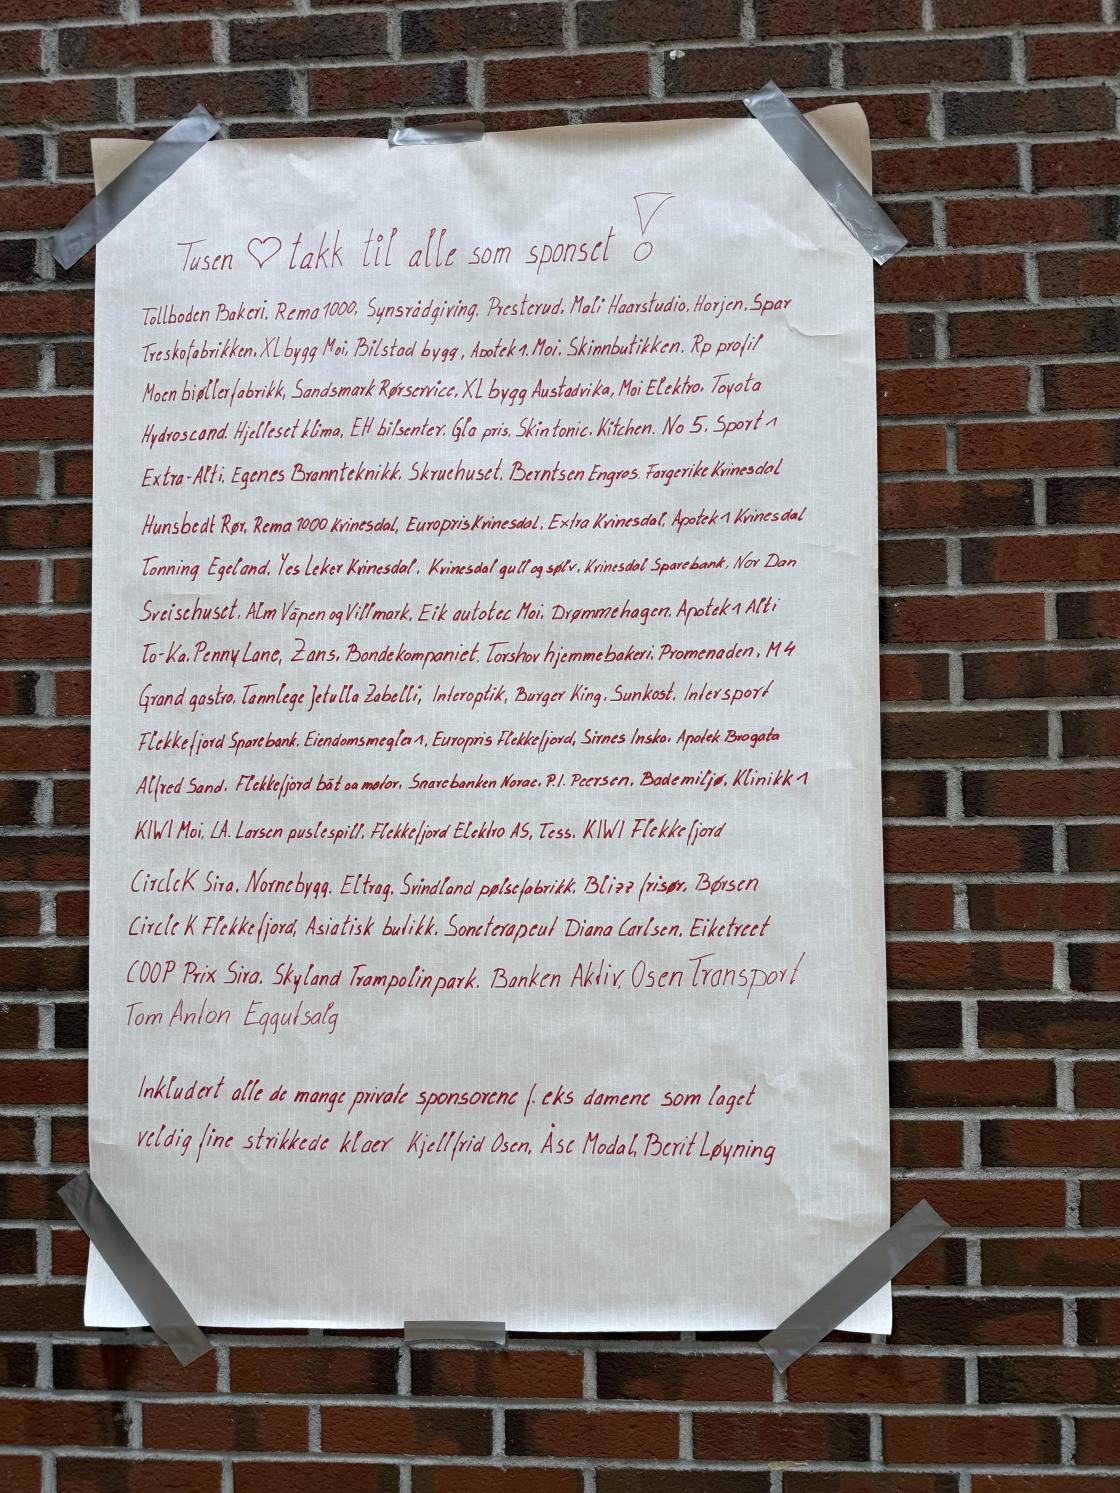 Tusen ♡ takk til alle som sponset !
Tollboden Bakeri, Rema 1000, Synsrådgiving, Presterud, Mali Haarstudio, Horjen, Spar
Treskofabrikken, XL bygg Moi, Bilstad bygg, Apotek 1. Moi. Skinnbutikken. Rp profil
Moen bjøllerfabrikk, Sandsmark Rørservice, XL bygg Austadvika, Moi Elektro, Toyota
Hydroscand. Hjelleset klima, EH bilsenter. Gla pris. Skintonic. Kitchen. No 5. Sport 1
Extra-Alti, Egenes Brannteknikk. Skruehuset. Berntsen Engros. Fargerike Kvinesdal
Hunsbedt Rør, Rema 1000 Kvinesdal, Europris Kvinesdal, Extra Kvinesdal, Apotek 1 Kvinesdal
Tonning Egeland. Yes Leker Kvinesdal, Kvinesdal gull og sølv. Kvinesdal Sparebank, Nor Dan
Sveisehuset, Alm Våpen og Villmark, Eik autotec Moi. Drømmehagen. Apotek 1 Alti
To-Ka. Penny Lane, Zans. Bondekompaniet. Torshov hjemmebakeri. Promenaden, M 4
Grand gastro. Tannlege Jetulla Zabelli, Interoptik, Burger King. Sunkost. Intersport
Flekkefjord Sparebank. Eiendomsmegler 1, Europris Flekkefjord, Sirnes Insko. Apotek Brogata
Alfred Sand. Flekkefjord båt og motor. Sparebanken Norge. P.I. Peersen. Bademiljø. Klinikk 1
KIWI Moi, LA. Larsen puslespill. Flekkefjord Elektro AS, Tess. KIWI Flekkefjord
Circle K Sira, Nornebygg. Eltrag. Svindland pølsefabrikk. Blizz frisør, Børsen
Circle K Flekkefjord, Asiatisk butikk. Soneterapeut Diana Carlsen, Eiketreet
COOP Prix Sira. Skyland Trampolinpark. Banken Aktiv. Osen Transport
Tom Anton Eggutsalg
Inkludert alle de mange private sponsorene f. eks damene som laget
veldig fine strikkede klaer Kjellfrid Osen, Åse Modal, Berit Løyning